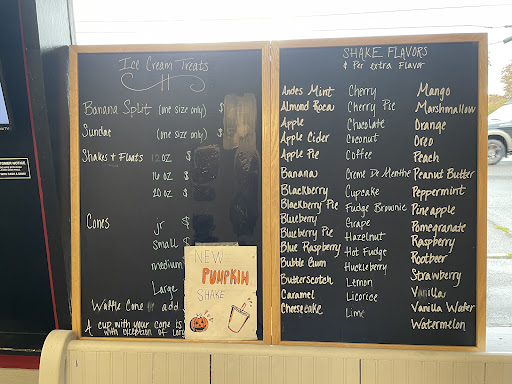 Ice Cream Treats
Banana Split (one size only) $
Sundae (one size only) $
Shakes & Floats 12 oz $
16 oz $
20 oz $
Cones jr $
Small $
medium
Large
Waffle Cone add
A cup with your cone is
with exception of
NEW
PUMPKIN
SHAKE
SHAKE FLAVORS
¢ Per extra Flavor
Andes Mint
Almond Roca
Apple
Apple Cider
Apple Pie
Banana
Blackberry
Blackberry Pie
Blueberry
Blueberry Pie
Blue Raspberry
Bubble Gum
Butterscotch
Caramel
Cheesecake
Cherry
Cherry Pie
Chocolate
Coconut
Coffee
Creme De Menthe
Cupcake
Fudge Brownie
Grape
Hazelnut
Hot Fudge
Huckleberry
Lemon
Licorice
Lime
Mango
Marshmallow
Orange
Oreo
Peach
Peanut Butter
Peppermint
Pineapple
Pomegranate
Raspberry
Rootbeer
Strawberry
Vanilla
Vanilla Wafer
Watermelon